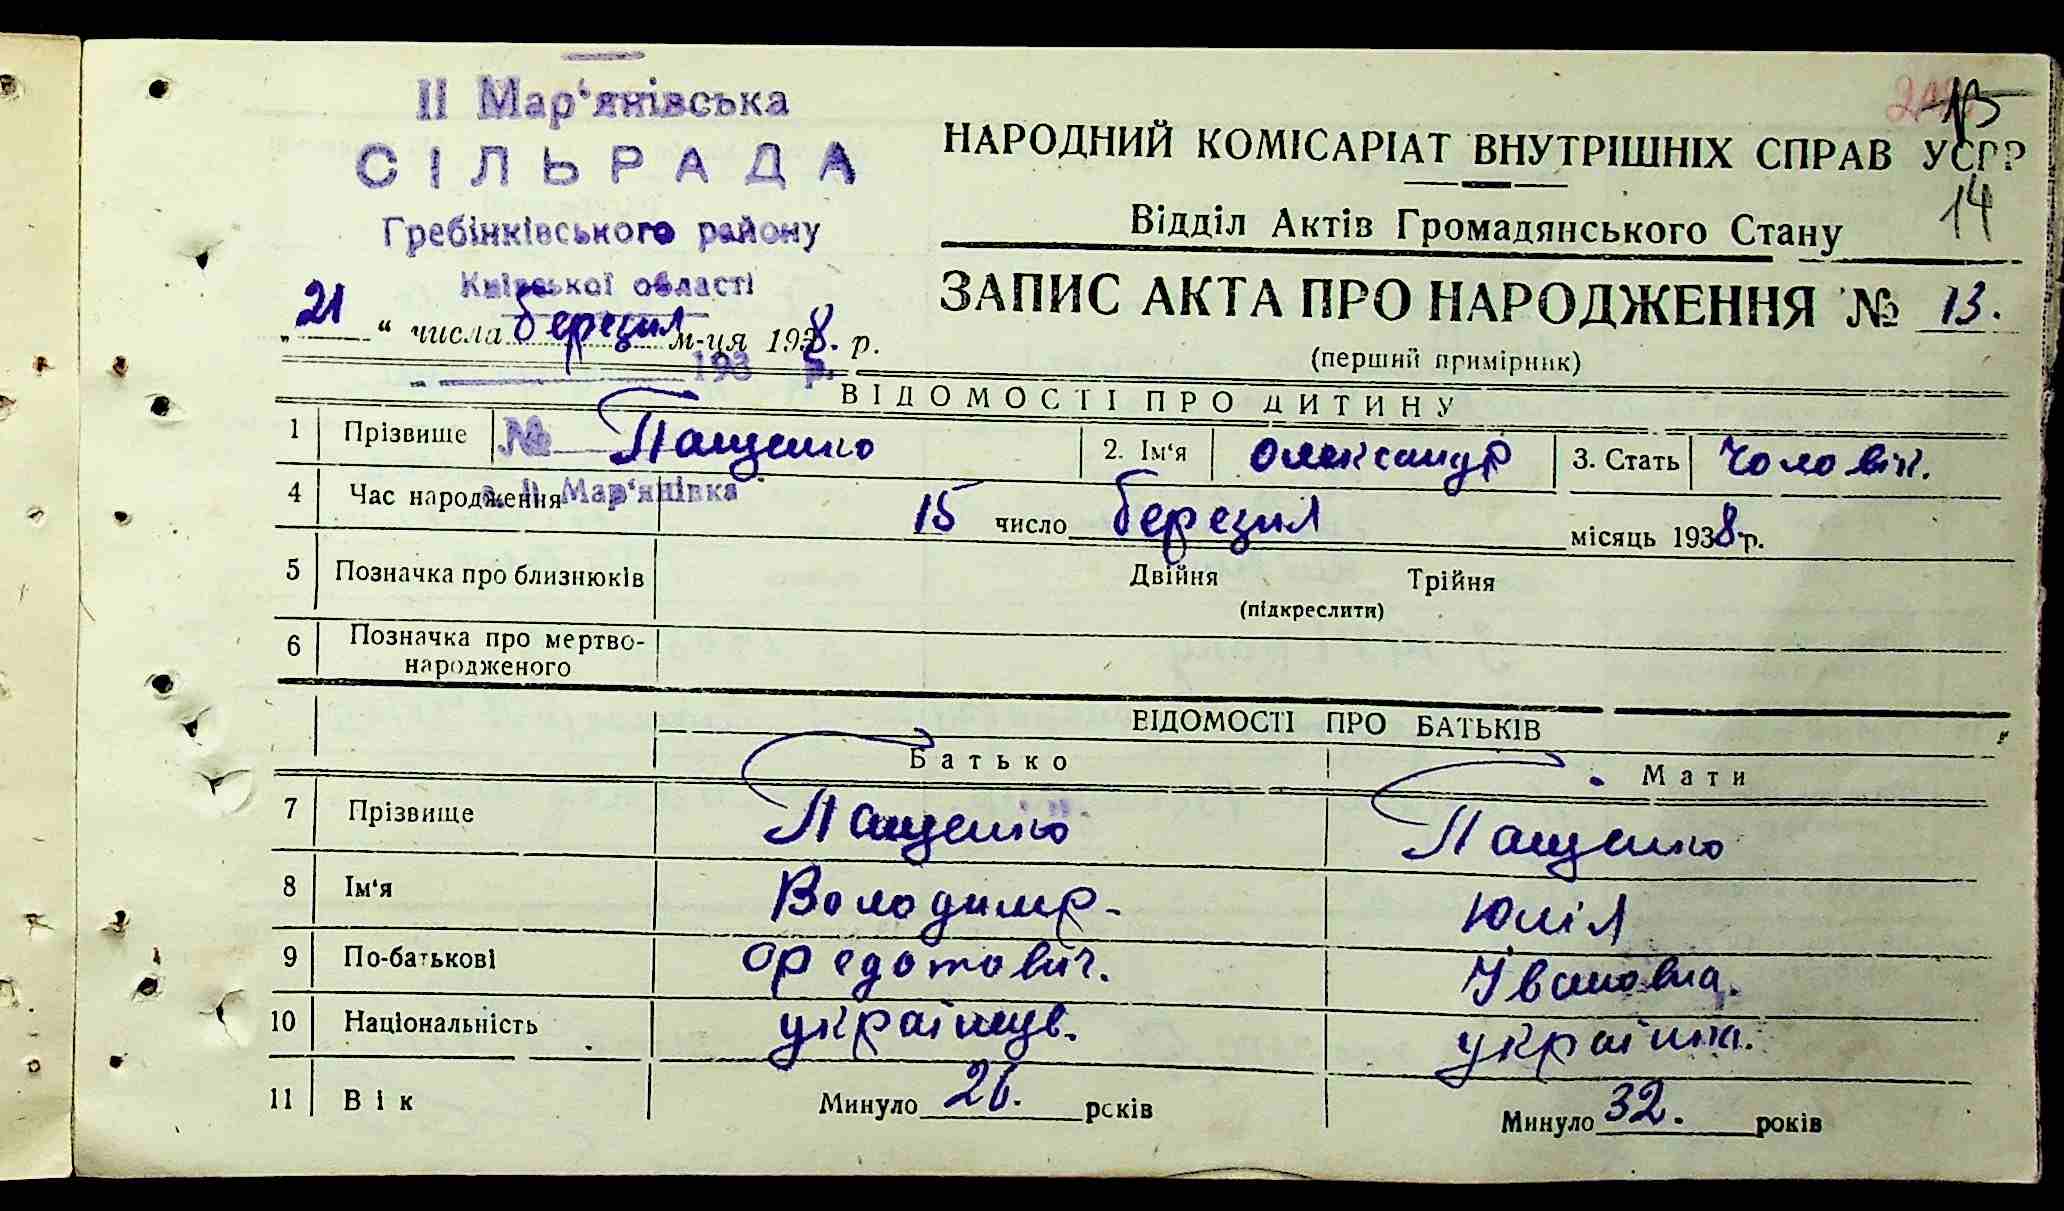 II Мар‘янівська
СІЛЬРАДА
Гребінківського району
Київської області
„21“ числа березня м-ця 1938. р.
193 р.
13
14
НАРОДНИЙ КОМІСАРІАТ ВНУТРІШНІХ СПРАВ УСРР
Відділ Актів Громадянського Стану
ЗАПИС АКТА ПРО НАРОДЖЕННЯ № 13.
(перший примірник)
ВІДОМОСТІ ПРО ДИТИНУ
1 Прізвище № Пащенко 2. Ім‘я Олександр 3. Стать Чоловіч.
с. II Мар‘янівка
4 Час народження 15 число березня місяць 1938 р.
5 Позначка про близнюків Двійня Трійня
(підкреслити)
6 Позначка про мертво-
народженого
ВІДОМОСТІ ПРО БАТЬКІВ
Батько Мати
7 Прізвище Пащенко Пащенко
8 Ім‘я Володимир- Юлія
9 По-батькові Федотович. Івановна.
10 Національність українец. українка.
11 Вік Минуло 26. років Минуло 32. років